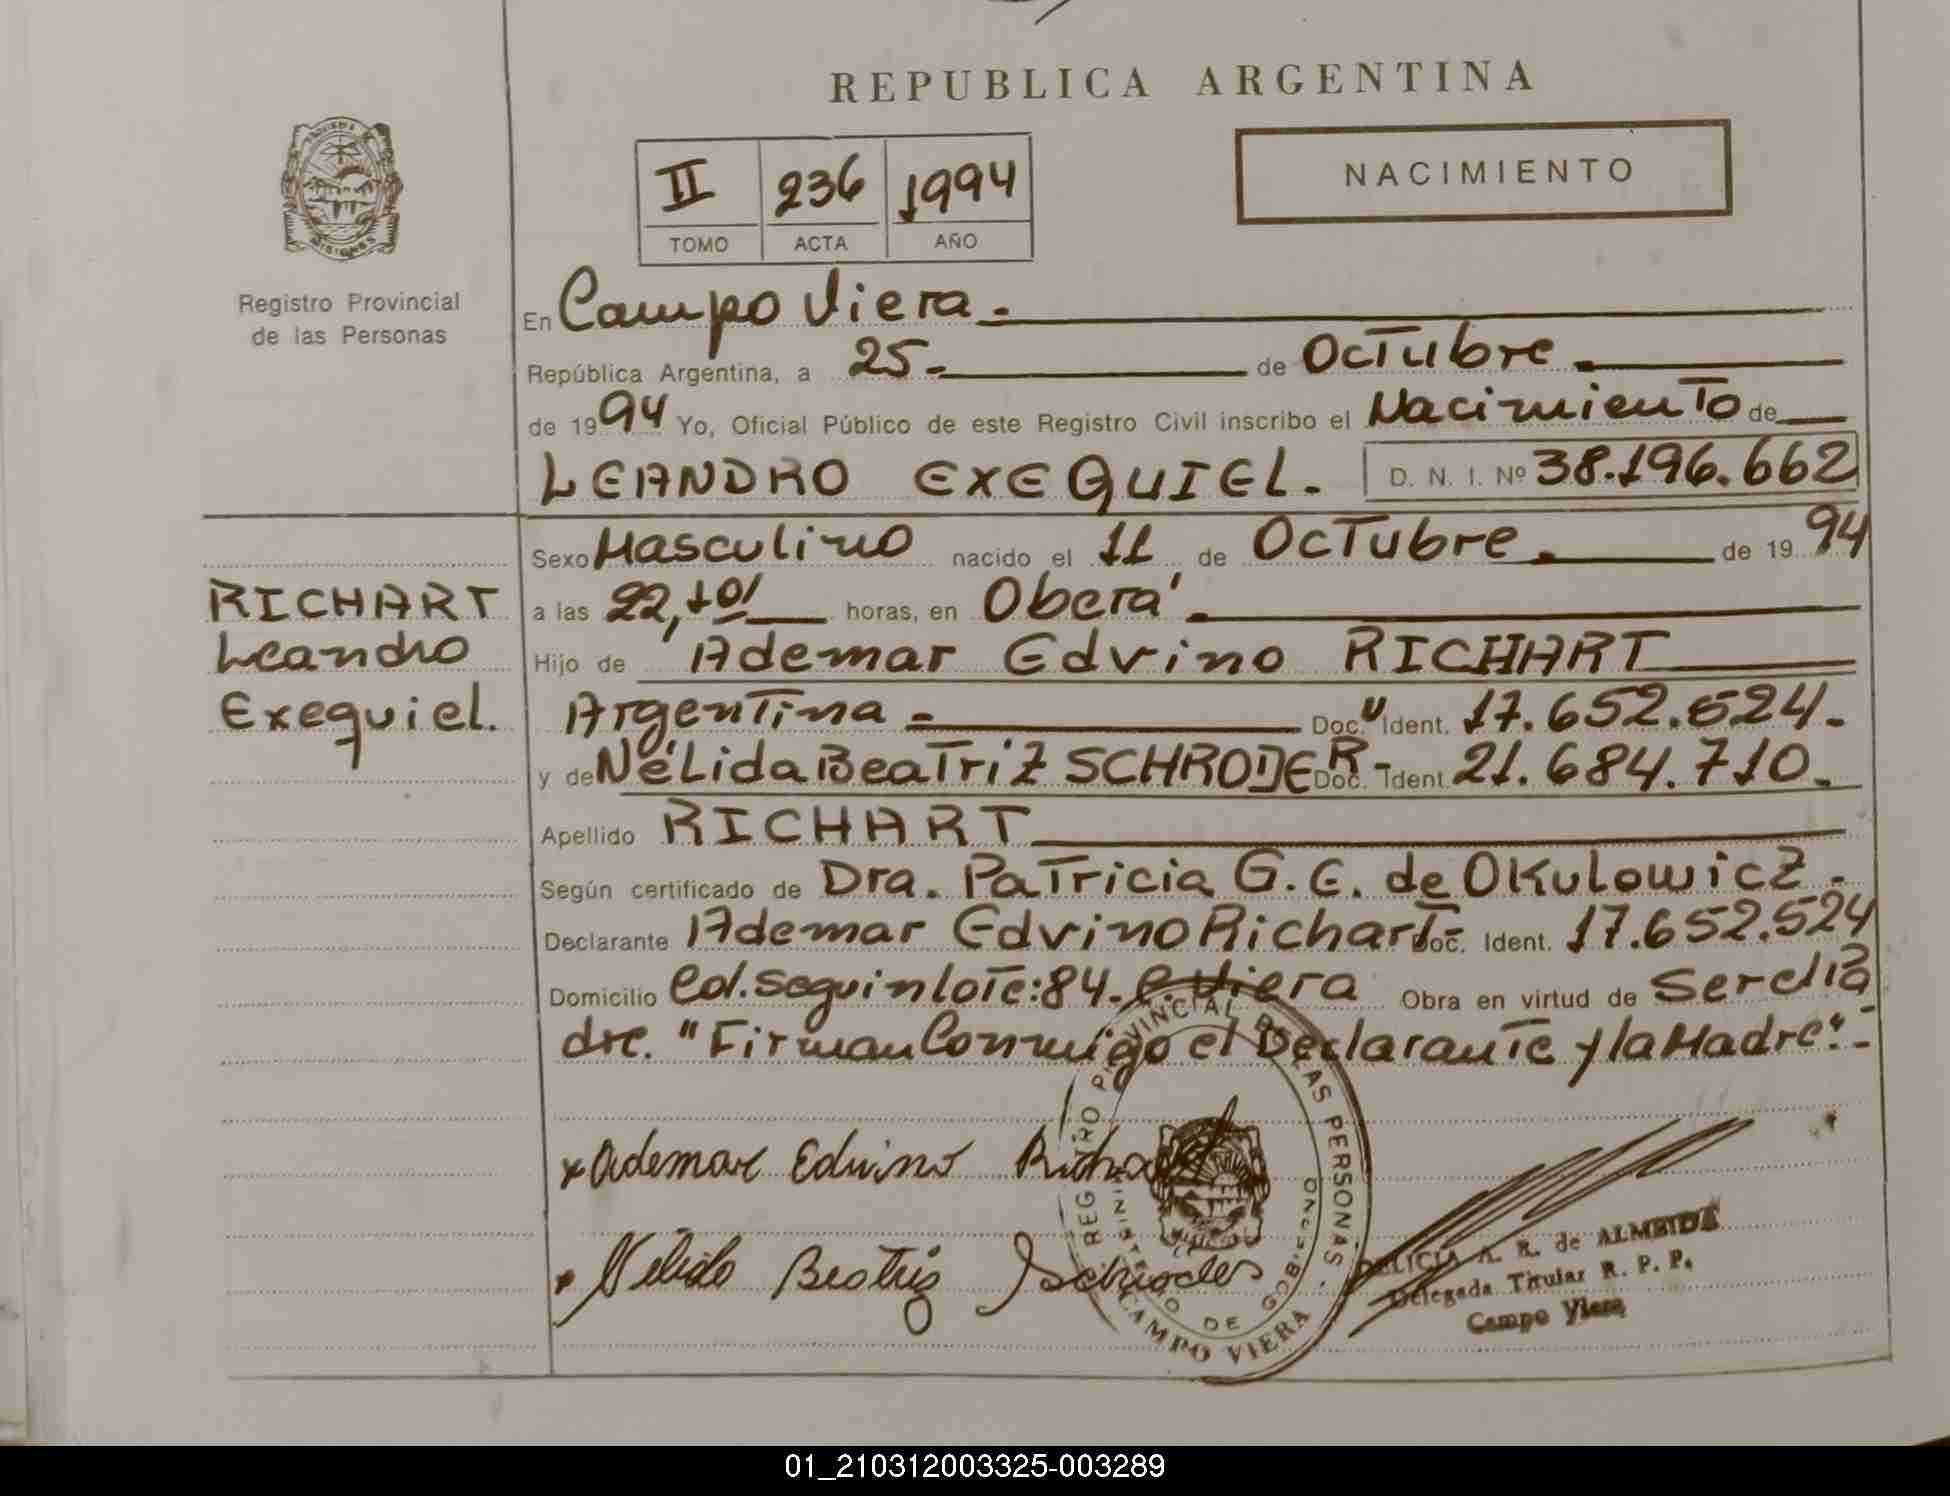 REPUBLICA ARGENTINA
NACIMIENTO
II 236 1994
TOMO ACTA AÑO
PROVINCIA DE
MISIONES
Registro Provincial
de las Personas
En Campo Viera.-
República Argentina, a 25.- de Octubre.-
de 1994 Yo, Oficial Público de este Registro Civil inscribo el Nacimiento de
LEANDRO EXEQUIEL.- D. N. I. Nº 38.196.662
Sexo Masculino nacido el 11 de Octubre.- de 1994
RICHART
Leandro
Exequiel.
a las 22,10' horas, en Oberá.-
Hijo de Ademar Edvino RICHART
Argentina.- Doc. Ident. 17.652.524.-
y de Nélida Beatriz SCHRODER.- Doc. Ident. 21.684.710.-
Apellido RICHART
Según certificado de Dra. Patricia G. E. de Okulowicz.-
Declarante Ademar Edvino Richart.- Doc. Ident. 17.652.524
Domicilio Col. Seguin lote: 84.- C. Viera Obra en virtud de Ser el Pa
dre. "Firman Conmigo el Declarante y la Madre".-
x Ademar Edvino Richart
x Nélida Beatriz Schroder
REGISTRO PROVINCIAL DE LAS PERSONAS
MINISTERIO DE GOBIERNO
CAMPO VIERA
DELICIA A. R. de ALMEIDA
Delegada Titular R. P. P.
Campo Viera
01_210312003325-003289